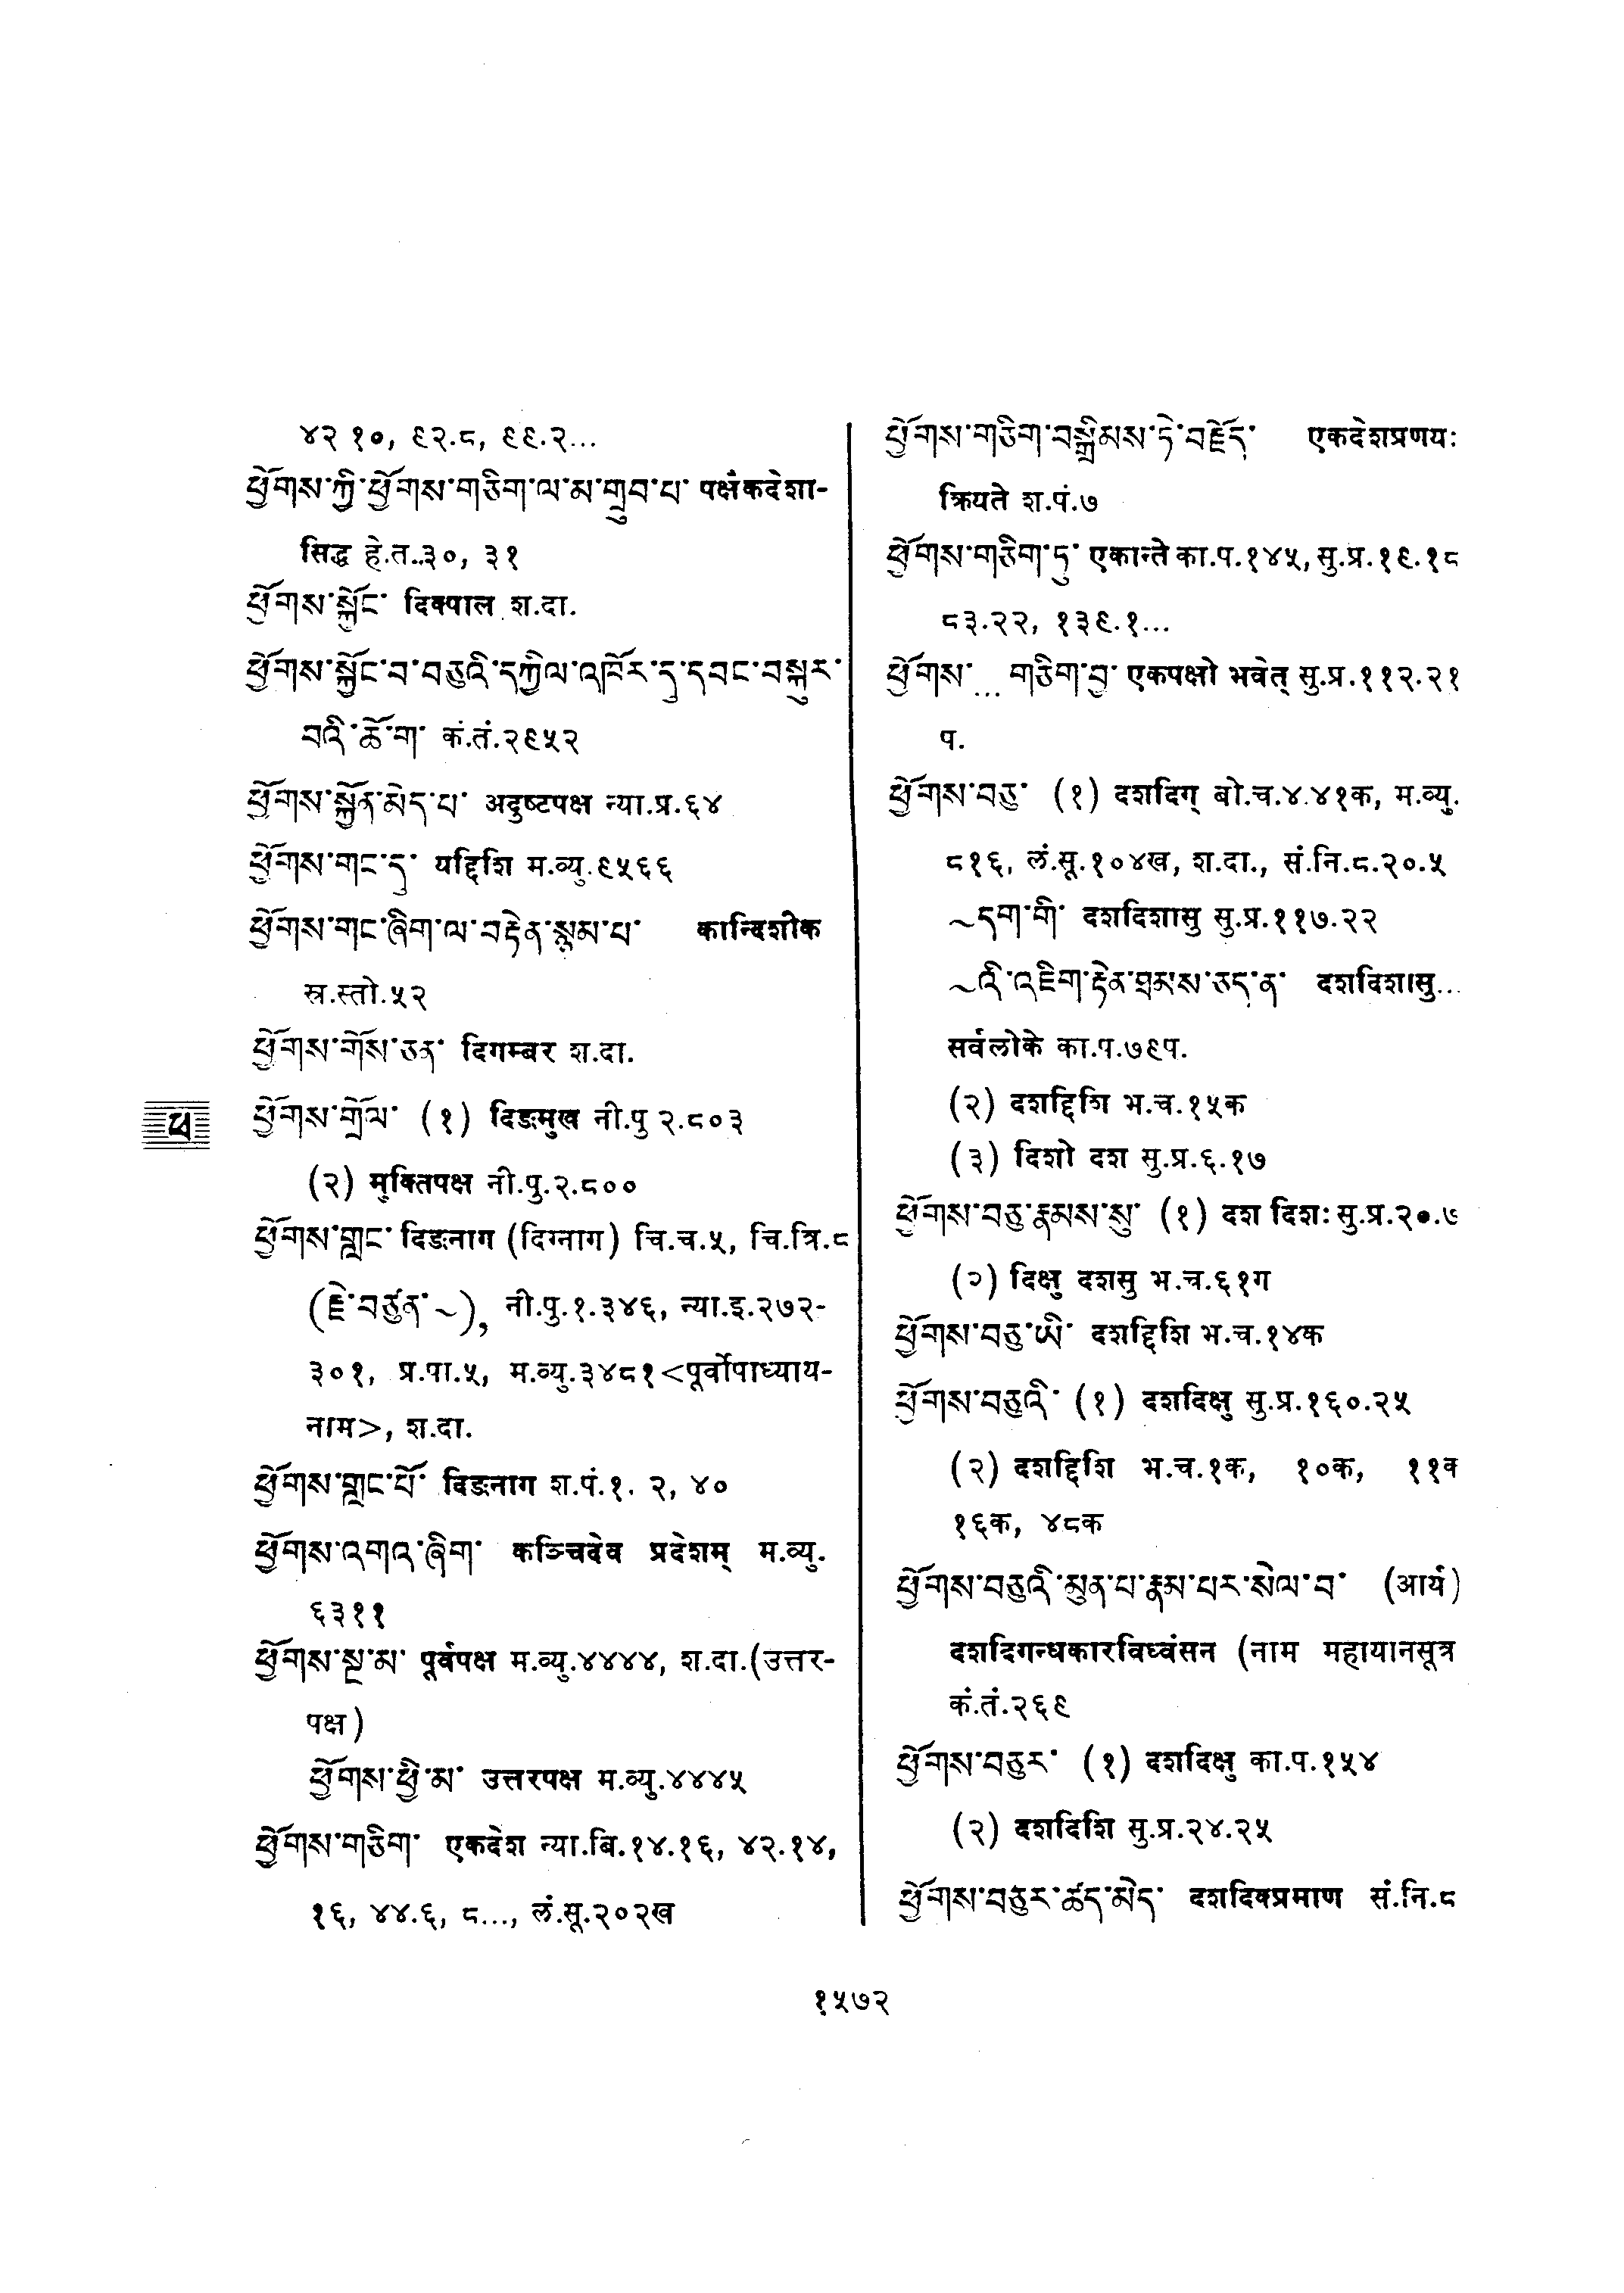 ४२ १०, ९२.८, ९९.२...
ཕྱོགས་ཀྱི་ཕྱོགས་གཅིག་ལ་མ་གྲུབ་པ་ पक्षैकदेशा-
सिद्ध हे.त..३०, ३१
ཕྱོགས་སྐྱོང་ दिक्पाल श.दा.
ཕྱོགས་སྐྱོང་བ་བཅུའི་དཀྱིལ་འཁོར་དུ་དབང་བསྐུར་
བའི་ཆོ་ག་ कं.तं.२९५२
ཕྱོགས་སྐྱོན་མེད་པ་ अदुष्टपक्ष न्या.प्र.६४
ཕྱོགས་གང་དུ་ यद्दिशि म.व्यु.९५६६
ཕྱོགས་གང་ཞིག་ལ་བརྟེན་སྙམ་པ་ कान्दिशीक
स्र.स्तो.५२
ཕྱོགས་གོས་ཅན་ दिगम्बर श.दा.
པ
ཕྱོགས་གྲོལ་ (१) दिङमुख नी.पु २.८०३
(२) मुक्तिपक्ष नी.पु.२.८००
ཕྱོགས་གླང་ दिङनाग (दिग्नाग) चि.च.५, चि.त्रि.८
(རྗེ་བཙུན་~), नी.पु.१.३४६, न्या.इ.२७२-
३०१, प्र.पा.५, म.व्यु.३४८१<पूर्वोपाध्याय-
नाम>, श.दा.
ཕྱོགས་གླང་པོ་ दिङनाग श.पं.१. २, ४०
ཕྱོགས་འགའ་ཞིག་ कञ्चिदेव प्रदेशम् म.व्यु.
६३११
ཕྱོགས་སྔ་མ་ पूर्वपक्ष म.व्यु.४४४४, श.दा.(उत्तर-
पक्ष)
ཕྱོགས་ཕྱི་མ་ उत्तरपक्ष म.व्यु.४४४५
ཕྱོགས་གཅིག་ एकदेश न्या.बि.१४.१६, ४२.१४,
१६, ४४.६, ८..., लं.सू.२०२ख
ཕྱོགས་གཅིག་བསྒྲིམས་ཏེ་བརྗོད་ एकदेशप्रणयः
क्रियते श.पं.७
ཕྱོགས་གཅིག་ཏུ་ एकान्ते का.प.१४५, सु.प्र.१९.१८
८३.२२, १३९.१...
ཕྱོགས་ ... གཅིག་བྱ་ एकपक्षो भवेत् सु.प्र.११२.२१
प.
ཕྱོགས་བཅུ་ (१) दशदिग् बो.च.४.४१क, म.व्यु.
८१६, लं.सू.१०४ख, श.दा., सं.नि.८.२०.५
~དག་གི་ दशदिशासु सु.प्र.११७.२२
~འི་འཇིག་རྟེན་ཐམས་ཅད་ན་ दशदिशासु...
सर्वलोके का.प.७९प.
(२) दशद्दिशि भ.च.१५क
(३) दिशो दश सु.प्र.६.१७
ཕྱོགས་བཅུ་རྣམས་སུ་ (१) दश दिशः सु.प्र.२०.७
(२) दिक्षु दशसु भ.च.६१ग
ཕྱོགས་བཅུ་ཡི་ दशद्दिशि भ.च.१४क
ཕྱོགས་བཅུའི་ (१) दशदिक्षु सु.प्र.१६०.२५
(२) दशद्दिशि भ.च.१क, १०क, ११क
१६क, ४८क
ཕྱོགས་བཅུའི་མུན་པ་རྣམ་པར་སེལ་བ་ (आर्य)
दशदिगन्धकारविध्वंसन (नाम महायानसूत्र
कं.तं.२६९
ཕྱོགས་བཅུར་ (१) दशदिक्षु का.प.१५४
(२) दशदिशि सु.प्र.२४.२५
ཕྱོགས་བཅུར་ཚད་མེད་ दशदिक्प्रमाण सं.नि.८
१५७२